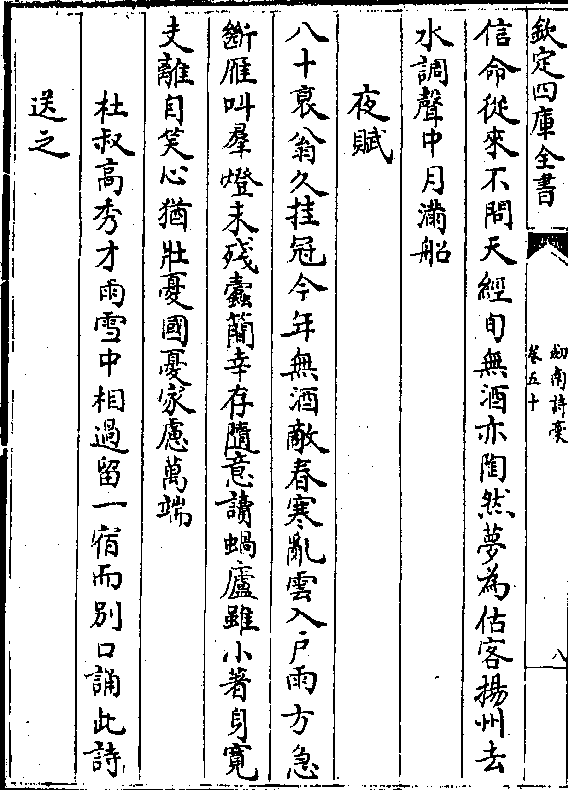 欽定四庫全書
劒南詩稾
卷五十
八
信命從來不問天經旬無酒亦陶然夢為估客揚州去
水調聲中月滿船
夜賦
八十衰翁久挂冠今年無酒敵春寒亂雲入戶雨方急
斷雁叫羣燈未殘蠹簡幸存隨意讀蝸廬雖小著身寛
支離自笑心猶壯憂國憂家慮萬端
杜叔高秀才雨雪中相過留一宿而别口誦此詩
送之